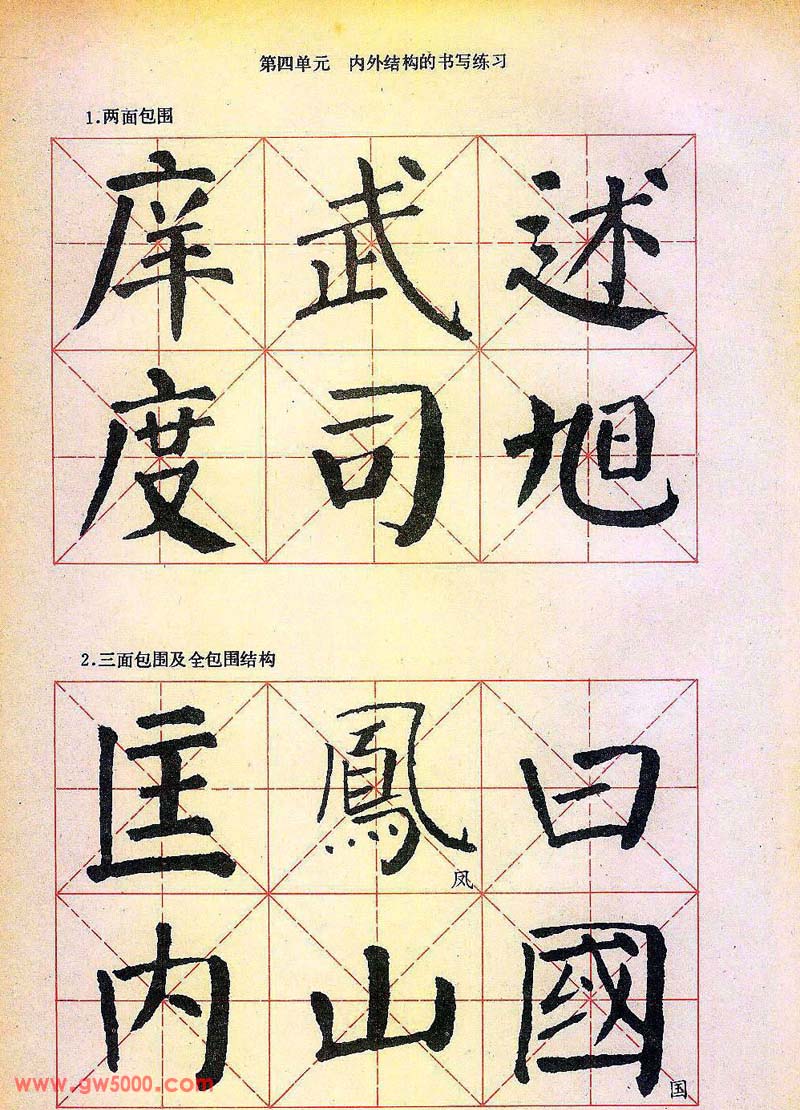 第四单元 内外结构的书写练习
1.两面包围
庠 武 述
度 司 旭
2.三面包围及全包围结构
匡 鳳 曰
凤
内 山 國
国
www.gw5000.com